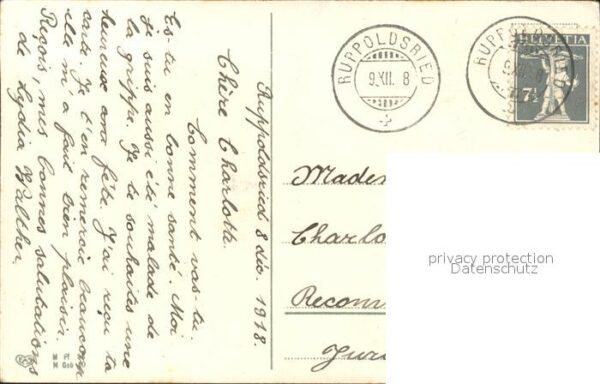 Ruppoldsried 8 déc. 1918.
Chère Charlotte.
Comment vas-tu.
Es-tu en bonne santé. Moi
je suis aussi été malade de
la grippe. Je te souhaites une
heureuse
carte. Je t'en remercie beaucoup
elle m'a fait bien plaisir.
Reçois, mes bonnes salutations
de Lydia Walther.
RUPPOLDSRIED
9.XII. 8
RUPPOLDSRIED
9.XII. 8
HELVETIA
7½
Madem
Charlo
Reconv
Jura
privacy protection
Datenschutz